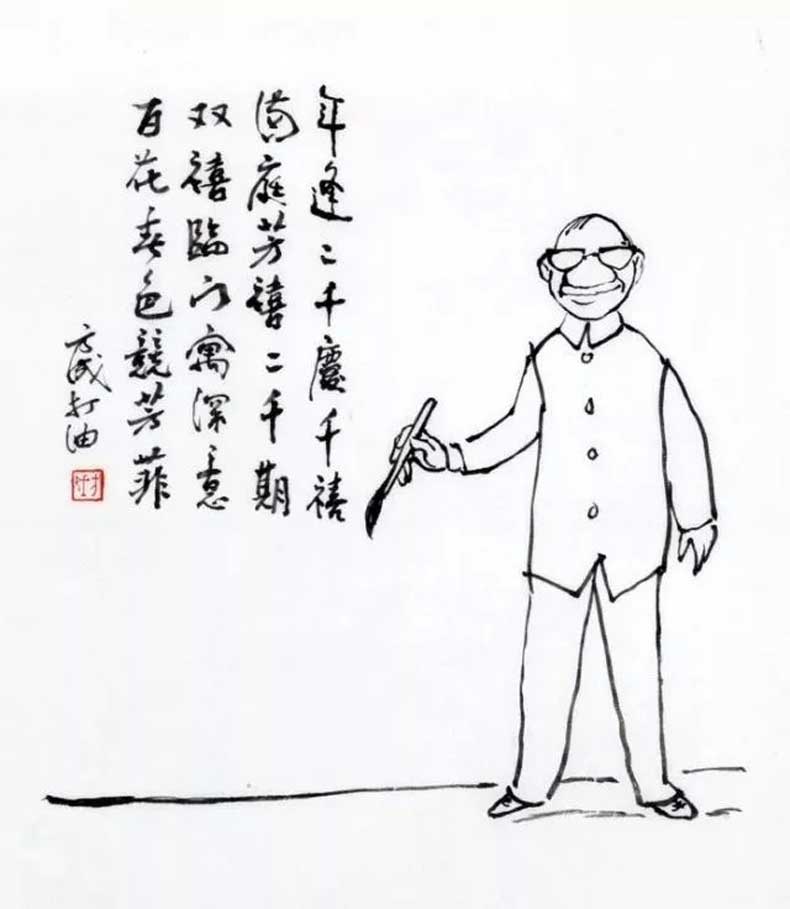 年逢二千慶千禧
满庭芳禧二千期
双禧臨门寓深意
百花春色競芳菲
方成打油